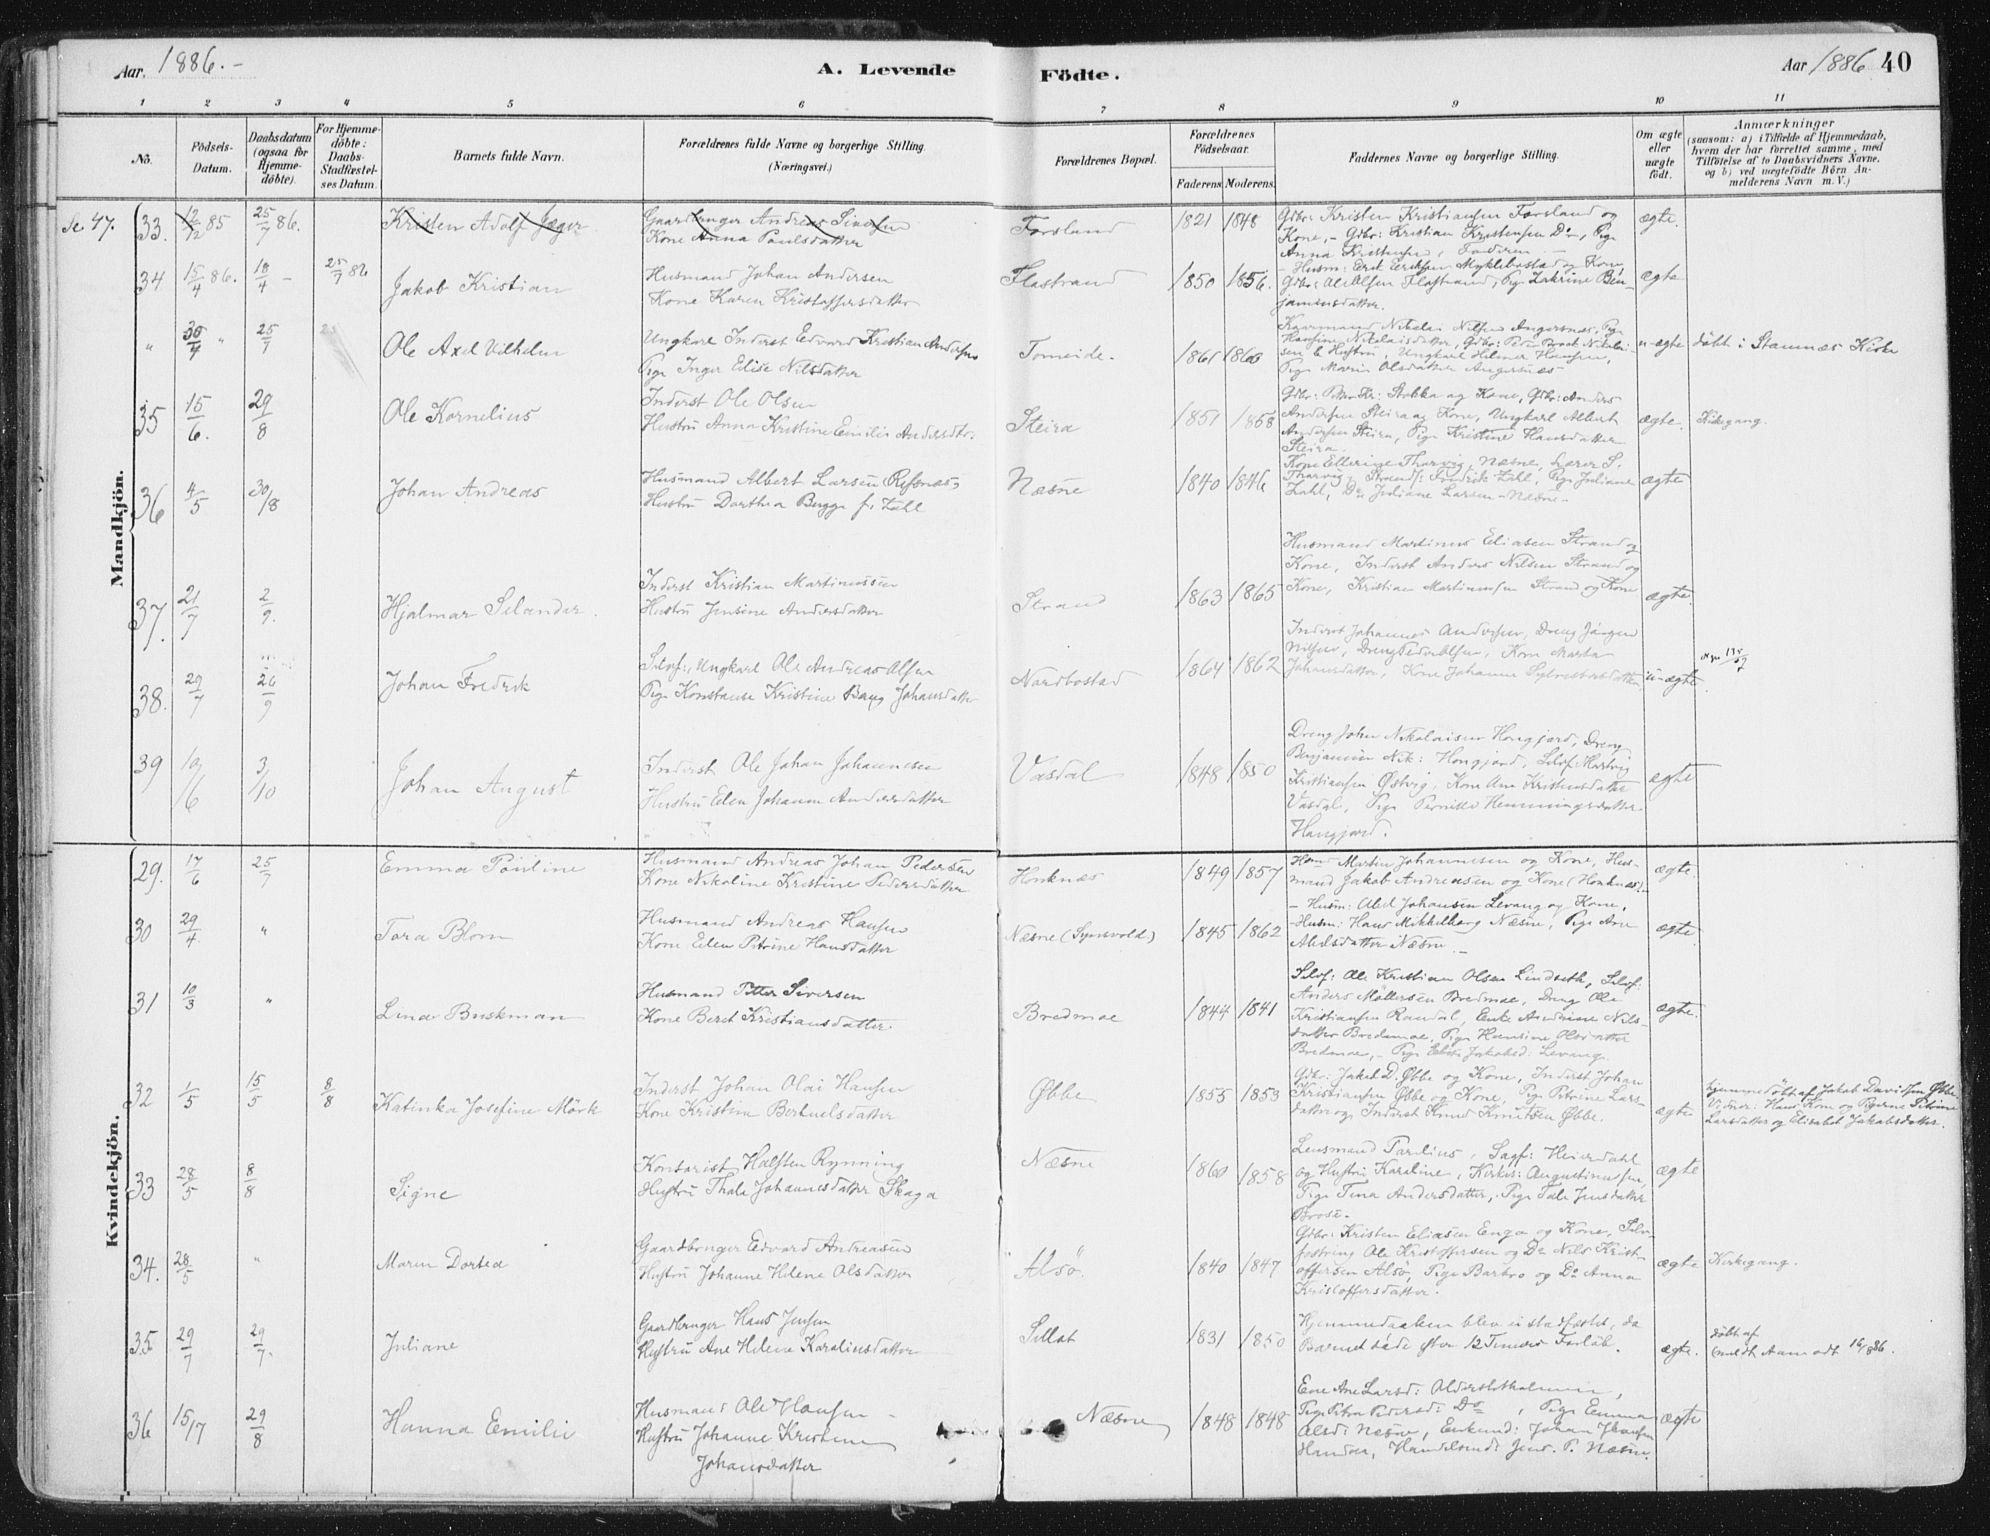 Aar. 1886.-
A. Levende
Födte.
Aar 1886
40
1 2 3 4 5 6 7 8 9 10 11
No.
Födsels-
Datum.
Daabsdatum
(ogsaa for
Hjemme-
döbte).
For Hjemme-
döbte:
Daabs-
Stadfæstel-
ses Datum.
Barnets fulde Navn.
Forældrenes fulde Navne og borgerlige Stilling.
(Næringsvei.)
Forældrenes Bopæl.
Forældrenes
Födselsaar.
Faderens. Moderens.
Faddernes Navne og borgerlige Stilling.
Om ægte
eller
uægte
födt.
Anmærkninger
(saasom: a) i Tilfælde af Hjemmedaab,
hvem der har forrettet samme, med
Tilföielse af to Daabsvidners Navne.
og b) ved uægtefödte Börn An-
melderens Navn m. V.)
Mandkjön.
Se 47. 33. 12/12 85 25/7 86. Kristen Adolf Jæger
Gaardbruger Andreas Simonsen
Kone Anna Paulsdatter
Forsland 1821 1848
Gdbr: Kristen Kristiansen Forsland og
Kone, - Gdbr: Kristian Kristensen Do, Pige
Anna Kristensen, Faderen -
ægte.
34 15/4 86. 18/4 - 25/7 86 Jakob Kristian
Husmand Johan Andersen
Kone Karen Kristoffersdatter
Flostrand 1850 1856.
- Husm: Erik Eriksen Myklebostad og Kone,
Gdbr: Ole Olsen Flostrand, Pige Zakrine Ben-
jaminsdatter.
ægte
" 30/4 " 25/7 Ole Axel Vilhelm
Ungkarl Inderst Edvard Kristian Andersen
Pige Inger Elise Nilsdatter
Tomeide. 1861 1860
Kaarmand Nikolai Nilsen Angersnæs, Pige
Hansine Nikolaisdatter, Gdbr: Peder Brock Nikolai-
sen & Hustru, Ungkarl Helmer Hansen,
Pige Maria Olsdatter Angersnæs
u-ægte döbt i Stamnæs Kirke
35 15/6. 29/8 Ole Kornelius
Inderst Ole Olsen
Hustru Anna Kristine Emilie Andersdtr.
Steira 1851 1858
Gdbr: Peter Kr: Stokka og Kone, Gdbr: Anders
Andersen Steira og Kone, Ungkarl Albert
Andersen Steira, Pige Kristine Hansdatter
Steira.
ægte. Kirkegang.
36 4/5 30/8 Johan Andreas
Husmand Albert Larsen (Resnæs)
Hustru Dorthea Bergge f. Zahl
Næsne 1840 1846
Kone Ellerine Tharvig, Næsne, Lærer S.
Tharvig, Strand, Fredrik Zahl, Pige Juliane
Zahl, Do Juliane Larsen - Næsne -
ægte
37. 21/7 2/9. Hjalmar Selander.
Inderst Kristian Martinussen
Hustru Jensine Andersdatter
Strand 1863 1865
Husmand Martinus Eliasen Strand og
Kone, Inderst Anders Nilsen Strand og
Kone, Kristian Martinussen Strand og Kone
ægte.
38. 29/7 26/9 Johan Fredrik
Selvf:, Ungkarl Ole Andreas Olsen
Pige Konstanse Kristine Bang Johansdatter
Nordbostad 1864 1862
Inderst Johannes Andersen, Dreng Jørgen
Nilsen, Dreng Peder Olsen, Kone Marta
Johansdatter, Kone Johanne Sylvestersdatter
u-ægte
39 10/6 3/10 Johan August
Inderst Ole Johan Johannesen
Hustru Elen Johanna Andersdatter
Vasdal 1848 1850
Dreng Johan Nikolaisen Hongjord, Dreng
Benjamin Nik: Hongjord, Selvf: Hartvig
Kristiansen Østvig, Kone Ane Kristensdatter
Vasdal, Pige Pernille Hemmingsdatter
Hongjord.
ægte
Kvindekjön.
29. 17/6 25/7 Emma Pauline
Husmand Andreas Johan Pedersen
Kone Nikoline Kristine Pedersdatter
Honknæs 1849 1857
Husm Martin Johannesen og Kone, Hus-
mand Jakob Andreasen og Kone (Honknæs).
ægte.
30 29/4. " Tora Blom
Husmand Andreas Hansen
Kone Elen Petrine Hansdatter
Næsne (Synsvold) 1845 1862
- Husm: Abel Johansen Levang og Kone,
- Husm: Hans Mikkelberg Næsne, Pige Ane
Abelsdatter Næsne. -
ægte.
31 10/3 " Lina Buskman
Husmand Petter Siversen
Kone Beret Kristiansdatter
Bredmoe 1844 1841
Selvf: Ole Kristian Olsen Lindseth, Selvf:
Anders Möllersen Bredmoe, Dreng Ole
Kristiansen Randal, Enke Andrine Nils-
datter Bredmoe, Pige Hansine Olsdatter
Bredmoe, - Pige Jakobsd: Levang.
ægte.
32 1/5 15/5 8/8 Katinka Josefine Mörk
Inderst Johan Olai Hansen
Kone Kristine Bertuelsdatter
Øbbe 1855 1853
Gdbr: Jakob D. Øbbe og Kone, Inderst Johan
Kristiansen Øbbe og Kone, Pige Petrine Lars-
datter og Inderst Knud Knutsen Øbbe.
ægte
hjemmedöbt af Jakob Davidsen Øbbe
Vidner: Hans Kone og Pigerne Petrine
Larsdatter og Elisabet Jakobsdatter.
33 28/5 8/8 Signe
Kontorist Halsten Rynning
Hustru Thale Johannesdatter Skaga
Næsne 1860 1858
Lensmand Parelius, Sagf: Heierdahl
og Hustru Karoline, Kirkes: Augustinussen,
Pige Tina Andersdatter, Pige Tale Jensdatter
Brose.
ægte
34. 28/5 " Maren Dortea
Gaardbruger Edvard Andreasen
Hustru Johanne Helene Olsdatter
Alsö. 1840 1847
Gdbr: Kristen Eliasen Enga og Kone, Selv-
fostring Ole Kristoffersen og Do Nils Krist-
offersen Alsö, Pige Barbro og Do Anna
Kristoffersdatter.
ægte Kirkegang.
35. 29/7 29/7. Juliane
Gaardbruger Hans Jensen
Hustru Ane Helene Karoliusdatter
Sellot 1831 1850
Hjemmedaaben blev ei stadfæstet, da
Barnet döde efter 12 Timers Forløb.
ægte.
döbt af
36 15/7 29/8 Hanna Emilie
Husmand Ole Hansen -
Hustru Johanne Kristine
Johansdatter
Næsne 1848 1848
Ene Ane Larsd: Alderslotholmen,
Pige Petra Pedersd: Do, Pige Emma
Olsd: Næsne, Enkemd: Johan Hansen
Handnæs, Handelsmd: Jens P. Næsne.
ægte